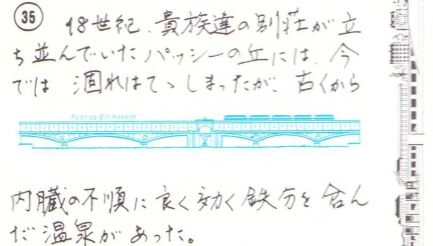 35
18世紀、貴族達の別荘が立
ち並んでいたパッシーの丘には、今
では涸れはてゝしまったが、古くから
Pont de Bir Hakeim
内臓の不順に良く効く鉄分を含ん
だ温泉があった。